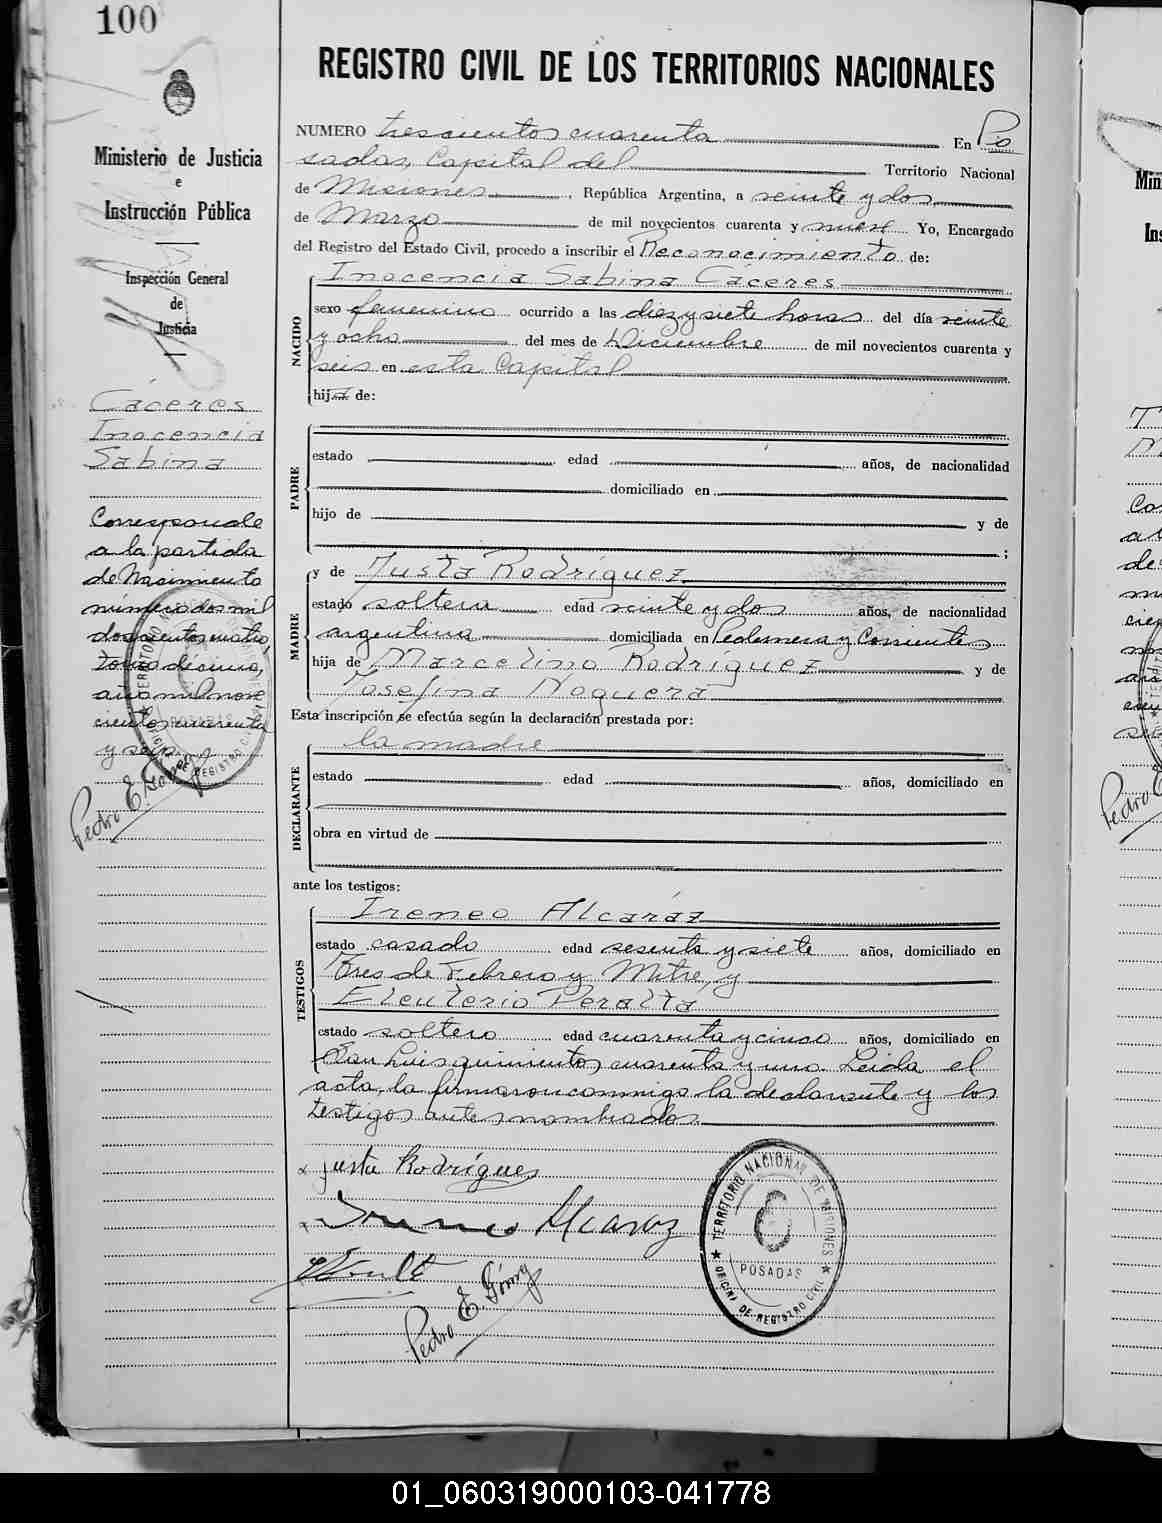 100
REGISTRO CIVIL DE LOS TERRITORIOS NACIONALES
Ministerio de Justicia
e
Instrucción Pública
Inspección General
de
Justicia
Cáceres
Inocencia
Sabina
Corresponde
a la partida
de Nacimiento
número dos mil
doscientos cuatro,
tomo décimo,
año mil nove
cientos cuarenta
y seis
Pedro E. Gómez
NUMERO trescientos cuarenta En Po
sadas, Capital del Territorio Nacional
de Misiones, República Argentina, a veinte y dos
de Marzo de mil novecientos cuarenta y nueve Yo, Encargado
del Registro del Estado Civil, procedo a inscribir el Reconocimiento de:
NACIDO
Inocencia Sabina Cáceres
sexo femenino ocurrido a las diez y siete horas del día veinte
y ocho del mes de Diciembre de mil novecientos cuarenta y
seis en esta Capital
hija de:
PADRE
estado edad años, de nacionalidad
domiciliado en
hijo de y de
;
MADRE
y de Justa Rodríguez
estado soltera edad veinte y dos años, de nacionalidad
argentina domiciliada en Pedernera y Corrientes
hija de Marcelino Rodríguez y de
Josefina Noguera
Esta inscripción se efectúa según la declaración prestada por:
DECLARANTE
la madre
estado edad años, domiciliado en
obra en virtud de
ante los testigos:
TESTIGOS
Ireneo Alcaráz
estado casado edad sesenta y siete años, domiciliado en
Tres de Febrero y Mitre, y
Eleuterio Peralta
estado soltero edad cuarenta y cinco años, domiciliado en
San Luis quinientos cuarenta y uno. Leida el
acta, la firmaron conmigo la declarante y los
testigos antes nombrados.
Justa Rodrígues
Ireneo Alcaraz
Pedro E. Gómez
TERRITORIO NACIONAL DE MISIONES
POSADAS
OFICINA DE REGISTRO CIVIL
01_060319000103-041778